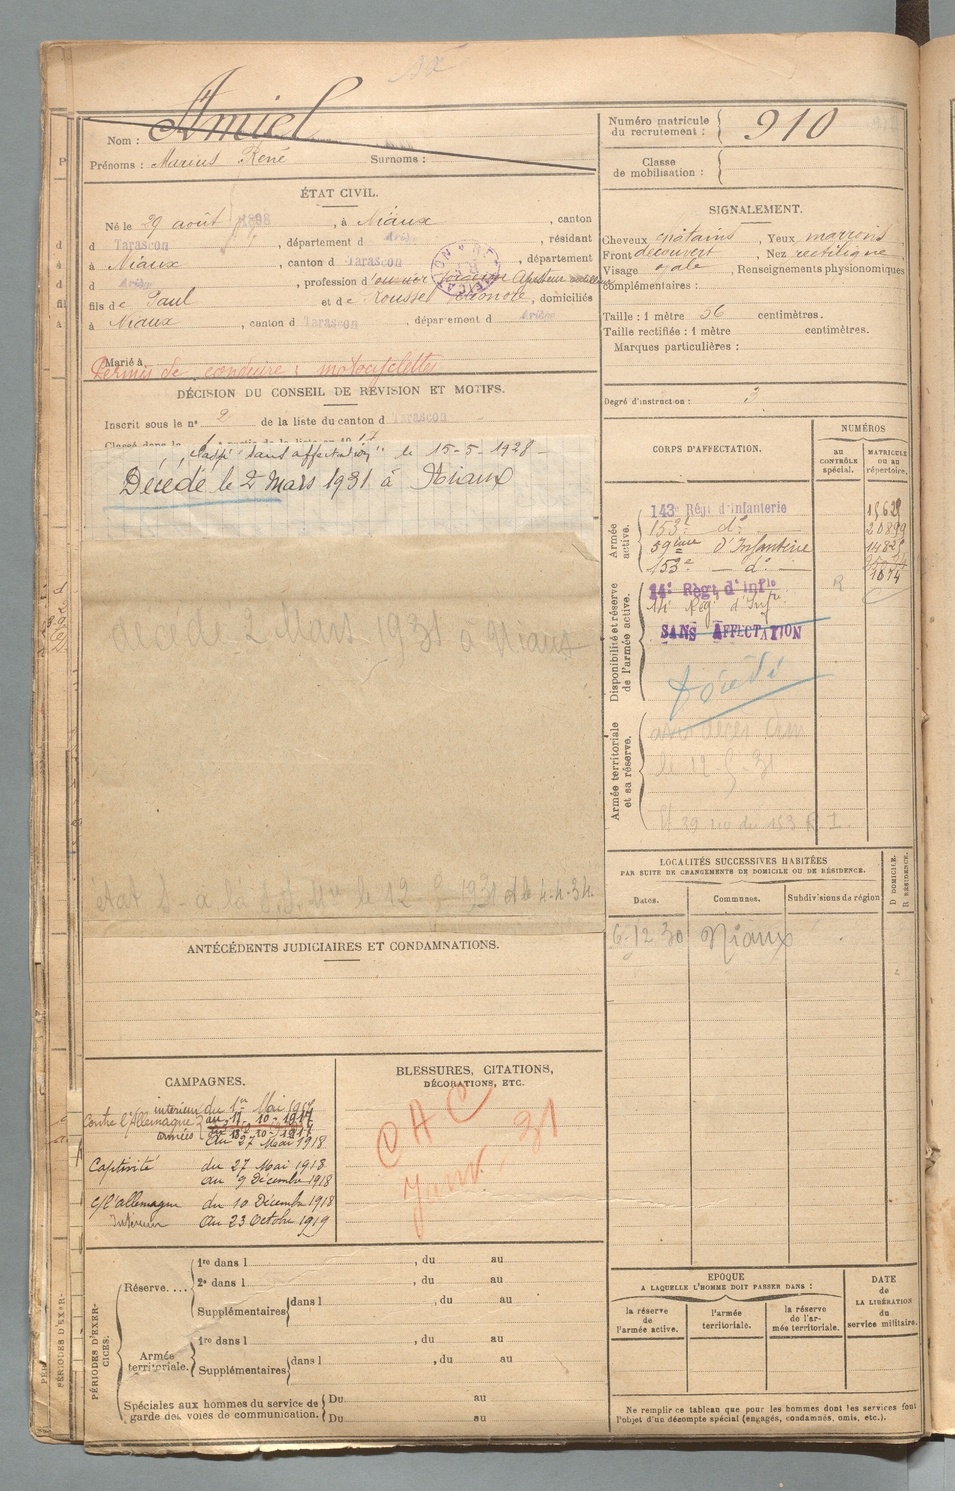 Amiel
Nom :
Prénoms : Marius René Surnoms :
Numéro matricule du recrutement : 910
Classe de mobilisation :
ÉTAT CIVIL.
Né le 29 août 1898, à Niaux, canton
d Tarascon, département d Ariège, résidant
à Niaux, canton d Tarascon, département
d Ariège, profession d'ouvrier
fils de Paul et de Rousse, domiciliés
à Niaux, canton d Tarascon, département d Ariège
Marié à
Permis de conduire : motocyclettes
SIGNALEMENT.
Cheveux châtains, Yeux marrons
Front découvert, Nez rectiligne
Visage ovale, Renseignements physionomiques
complémentaires :
Taille : 1 mètre 56 centimètres.
Taille rectifiée : 1 mètre centimètres.
Marques particulières :
Degré d'instruction : 3
DÉCISION DU CONSEIL DE RÉVISION ET MOTIFS.
Inscrit sous le n° 2 de la liste du canton d Tarascon
Classé dans la 1 partie de la liste en 1917
Classé "sans affectation" le 15-5-1928
Décédé le 2 Mars 1931 à Niaux
décédé le 2 Mars 1931 à Niaux
le 12 1931 4.4.34
CORPS D'AFFECTATION.
NUMÉROS
au CONTRÔLE spécial.
MATRICULE ou au répertoire.
Armée active.
143e Régt d'infanterie
153e do
59ème d'Infanterie
153e do
Disponibilité et réserve de l'armée active.
14e Régt d'Infie R 1674
14e Rég. d'Infie
SANS AFFECTATION
Décédé
Armée territoriale et sa réserve.
153 R.I.
LOCALITÉS SUCCESSIVES HABITÉES
PAR SUITE DE CHANGEMENTS DE DOMICILE OU DE RÉSIDENCE.
Dates. Communes. Subdivisions de région
D DOMICILE.
R RÉSIDENCE.
6-12 30 Niaux
ANTÉCÉDENTS JUDICIAIRES ET CONDAMNATIONS.
CAMPAGNES.
intérieur du 1er Mai 1917
Contre l'Allemagne au 11-10-1917
armées
au 27 Mai 1918
Captivité du 27 Mai 1918
au 9 Décembre 1918
c/l'allemagne du 10 Décembre 1918
Intérieur au 23 Octobre 1919
BLESSURES, CITATIONS,
DÉCORATIONS, ETC.
CAC
Janv. 31
PÉRIODES D'EXERCICES.
Réserve....
1re dans l, du au
2e dans l, du au
Supplémentaires dans l, du au
Armée territoriale.
1re dans l, du au
Supplémentaires dans l, du au
Spéciales aux hommes du service de garde des voies de communication.
Du au
Du au
EPOQUE
A LAQUELLE L'HOMME DOIT PASSER DANS :
la réserve de l'armée active.
l'armée territoriale.
la réserve de l'armée territoriale.
DATE de LA LIBÉRATION du service militaire.
Ne remplir ce tableau que pour les hommes dont les services font
l'objet d'un décompte spécial (engagés, condamnés, omis, etc.).
PÉRIODES D'EXER-